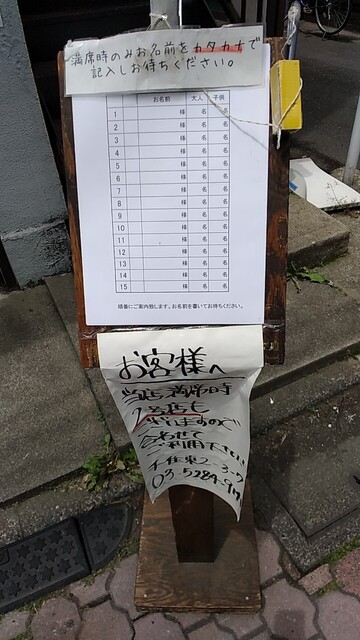 満席時のみお名前をカタカナで
記入しお待ちください。
お名前 大人 子供
1 様 名 名
2 様 名 名
3 様 名 名
4 様 名 名
5 様 名 名
6 様 名 名
7 様 名 名
8 様 名 名
9 様 名 名
10 様 名 名
11 様 名 名
12 様 名 名
13 様 名 名
14 様 名 名
15 様 名 名
順番にご案内致します。お名前を書いてお待ちください。
お客様へ
当店満席時
2号店も
ございますので
合わせて
ご利用下さい
千住東2-3-7
03-5284-91